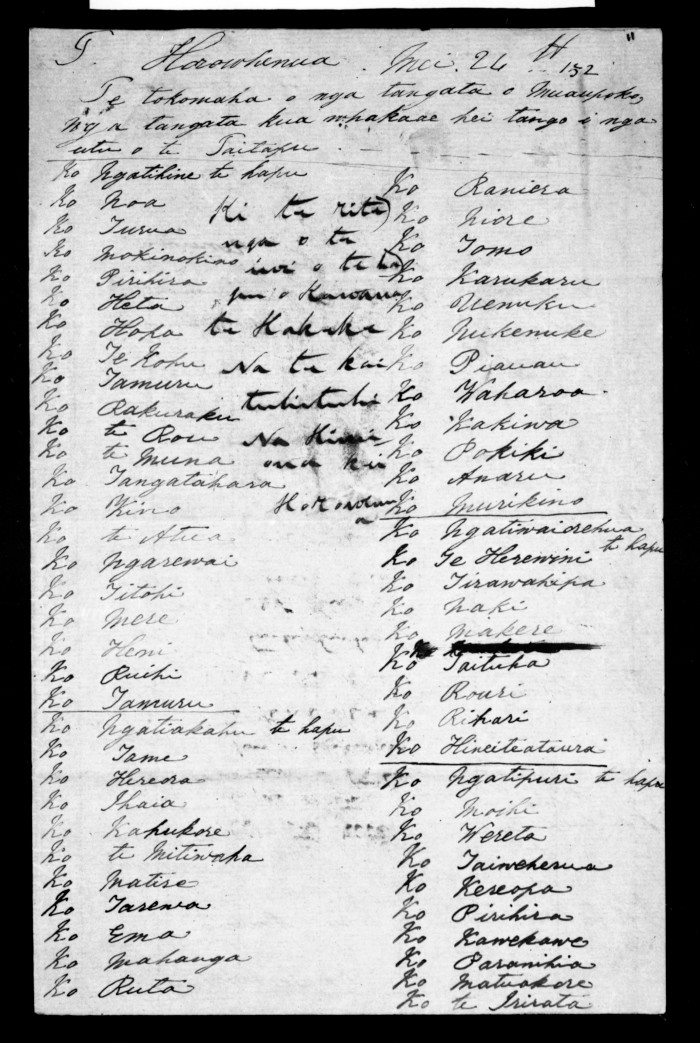 Horowhenua Mei 24th
152
Te tokomaha o nga tangata o Muaupoko,
Nga tangata kua whakaae hei tango i nga
utu o te Taitapu
Ko Ngatihine te hapu
Ko Noa
Ko Turua
Ko Mokinokino
Ko Pirihira
Ko Heta
Ko Hopa
Ko Te Kohu
Ko Tamuru
Ko Rakuraku
Ko te Rou
Ko te Muna
Ko Tangatahara
Ko Kino
Ko te Atua
Ko Ngarewai
Ko Titohi
Ko Mere
Ko Heni
Ko Ruihi
Ko Tamuru
Ko Ngatiakahu te hapu
Ko Tame
Ko Hereora
Ko Ihaia
Ko Kahukore
Ko te Mitiwaha
Ko Matire
Ko Tarewa
Ko Ema
Ko Mahanga
Ko Ruta
Ki te rite
nga o te
iwi o te
Kawana
te
Na te kai
tuhituhi
Na Himi
Ko Raniera
Ko Niore
Ko Tomo
Ko Karukaru
Ko Uenuku
Ko Nukenuke
Ko Piauau
Ko Waharoa
Ko Kakiwa
Ko Pokiki
Ko Anaru
Ko Murikino
Ko Ngatiwaiorehua
te hapu
Ko Te Herewini
Ko Tirawahipa
Ko Naki
Ko Makere
Ko Taituha
Ko Rouri
Ko Rihari
Ko Hineiteataurai
Ko Ngatipuri te hapu
Ko Moihi
Ko Wereta
Ko Taiweherua
Ko Kereopa
Ko Pirihira
Ko Kawekawe
Ko Paranihia
Ko Matuakore
Ko te Irirata